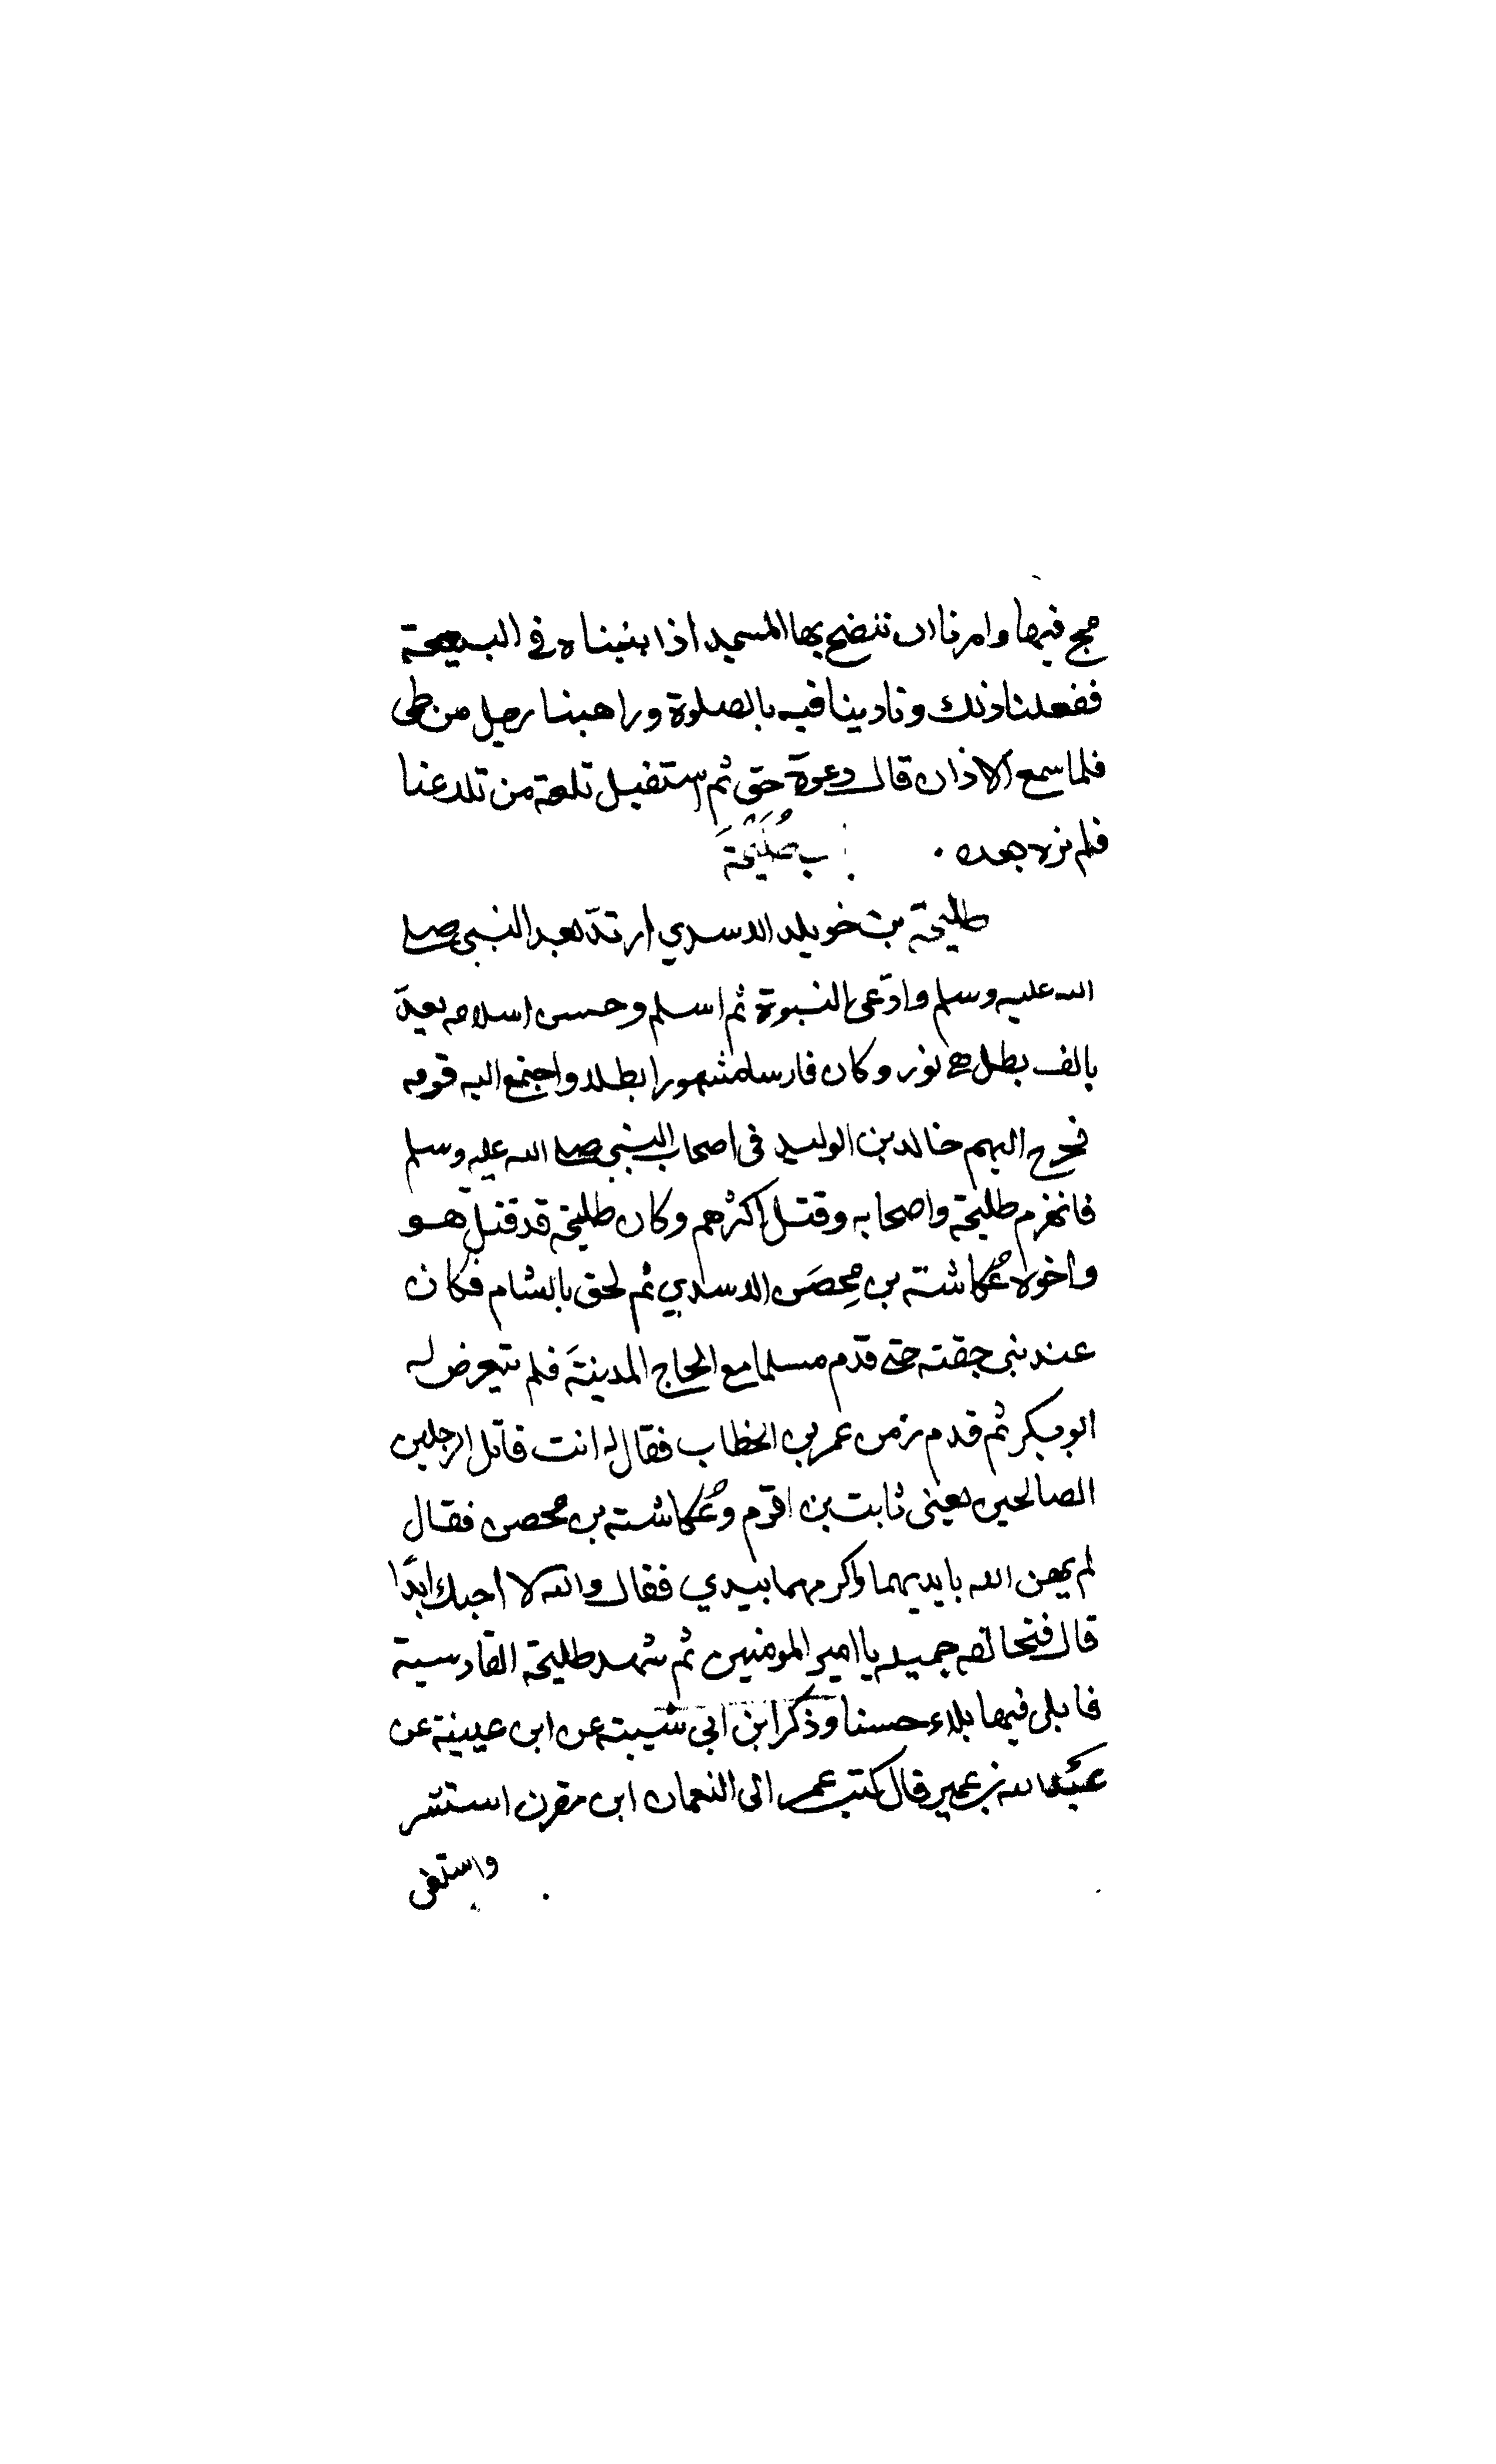 مج فيها وامرنا ان ننضح بها المسجد اذا بنيناه في البيعة
ففعلنا ذلك ونادينا فيه بالصلوة وراهبنا رجل من طي
فلما سمع الاذان قال دعوة حق ثم استقبل تلعة من تلاعنا
فلم نره بعده .
ب طُلَيْحَةَ
طليحة بن خويلد الاسدي ارتدّ بعد النبي صلى
الله عليه وسلم وادّعى النبوة ثم اسلم وحسن اسلامه يعدّ
بالف بطل نور وكان فارسا مشهورا بطلا واجتمع اليه قومه
فخرج اليهم خالد بن الوليد في اصحاب النبي صلى الله عليه وسلم
فانهزم طليحة واصحابه وقتل اكثرهم وكان طليحة قد قتل هو
واخوه عُكاشة بن مِحصَن الاسدي ثم لحق بالشام فكان
عند بني جفنة حتى قدم مسلما مع الحاج المدينة فلم يتعرض له
ابو بكر ثم قدم زمن عمر بن الخطاب فقال له انت قاتل الرجلين
الصالحين يعني ثابت بن اقرم وعُكاشة بن محصن فقال
لم يهن الله بايديهما واكرمهما بيدي فقال والله لا احبك ابدًا
قال فمخالقة جميلة يا امير المومنين ثم شهد طليحة القادسية
فابلى فيها بلاء حسنا وذكر ابن ابي شيبة عن ابن عيينة عن
عبد الله بن عمير قال كتب عمر الى النعمان ابن مقرن استشر
واستعن